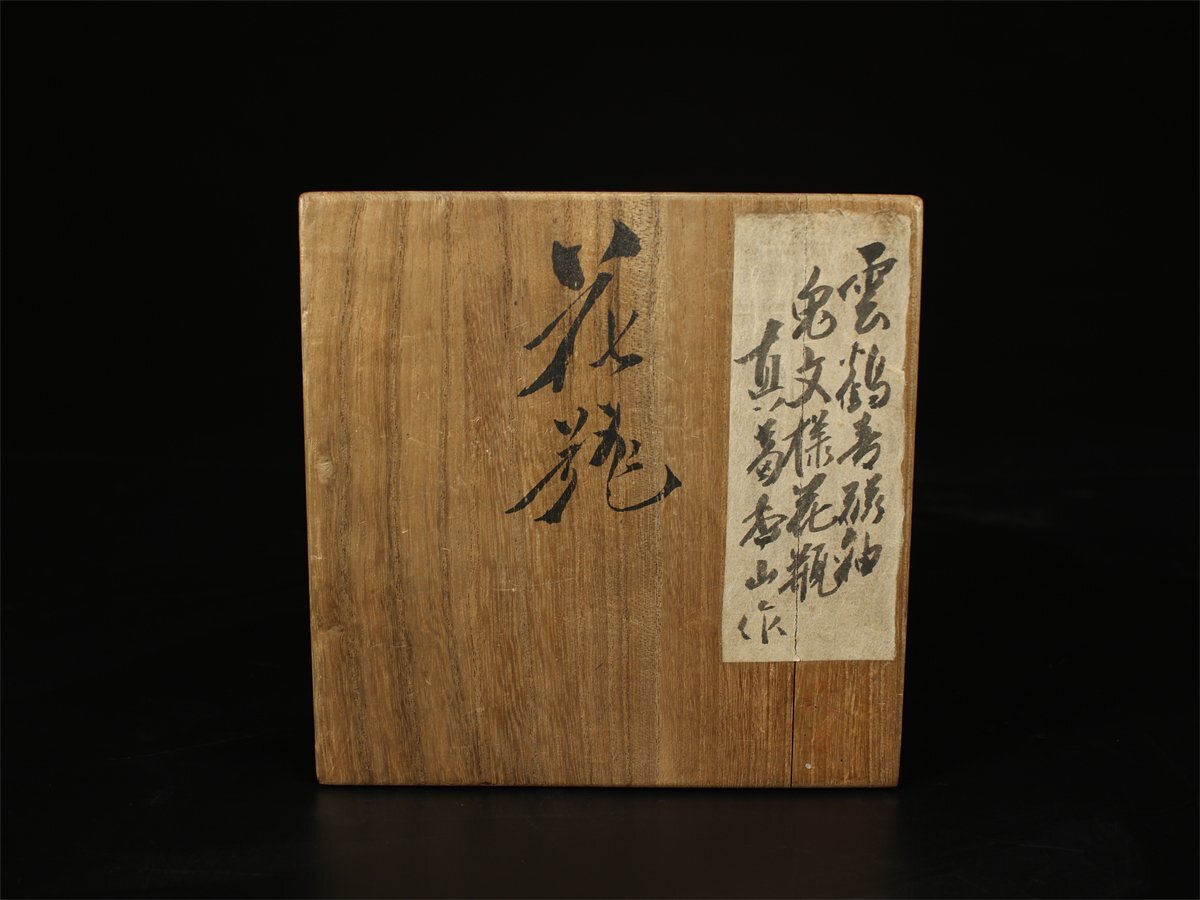 雲鶴青磁釉
兎文様花瓶
真葛香山作
花瓶